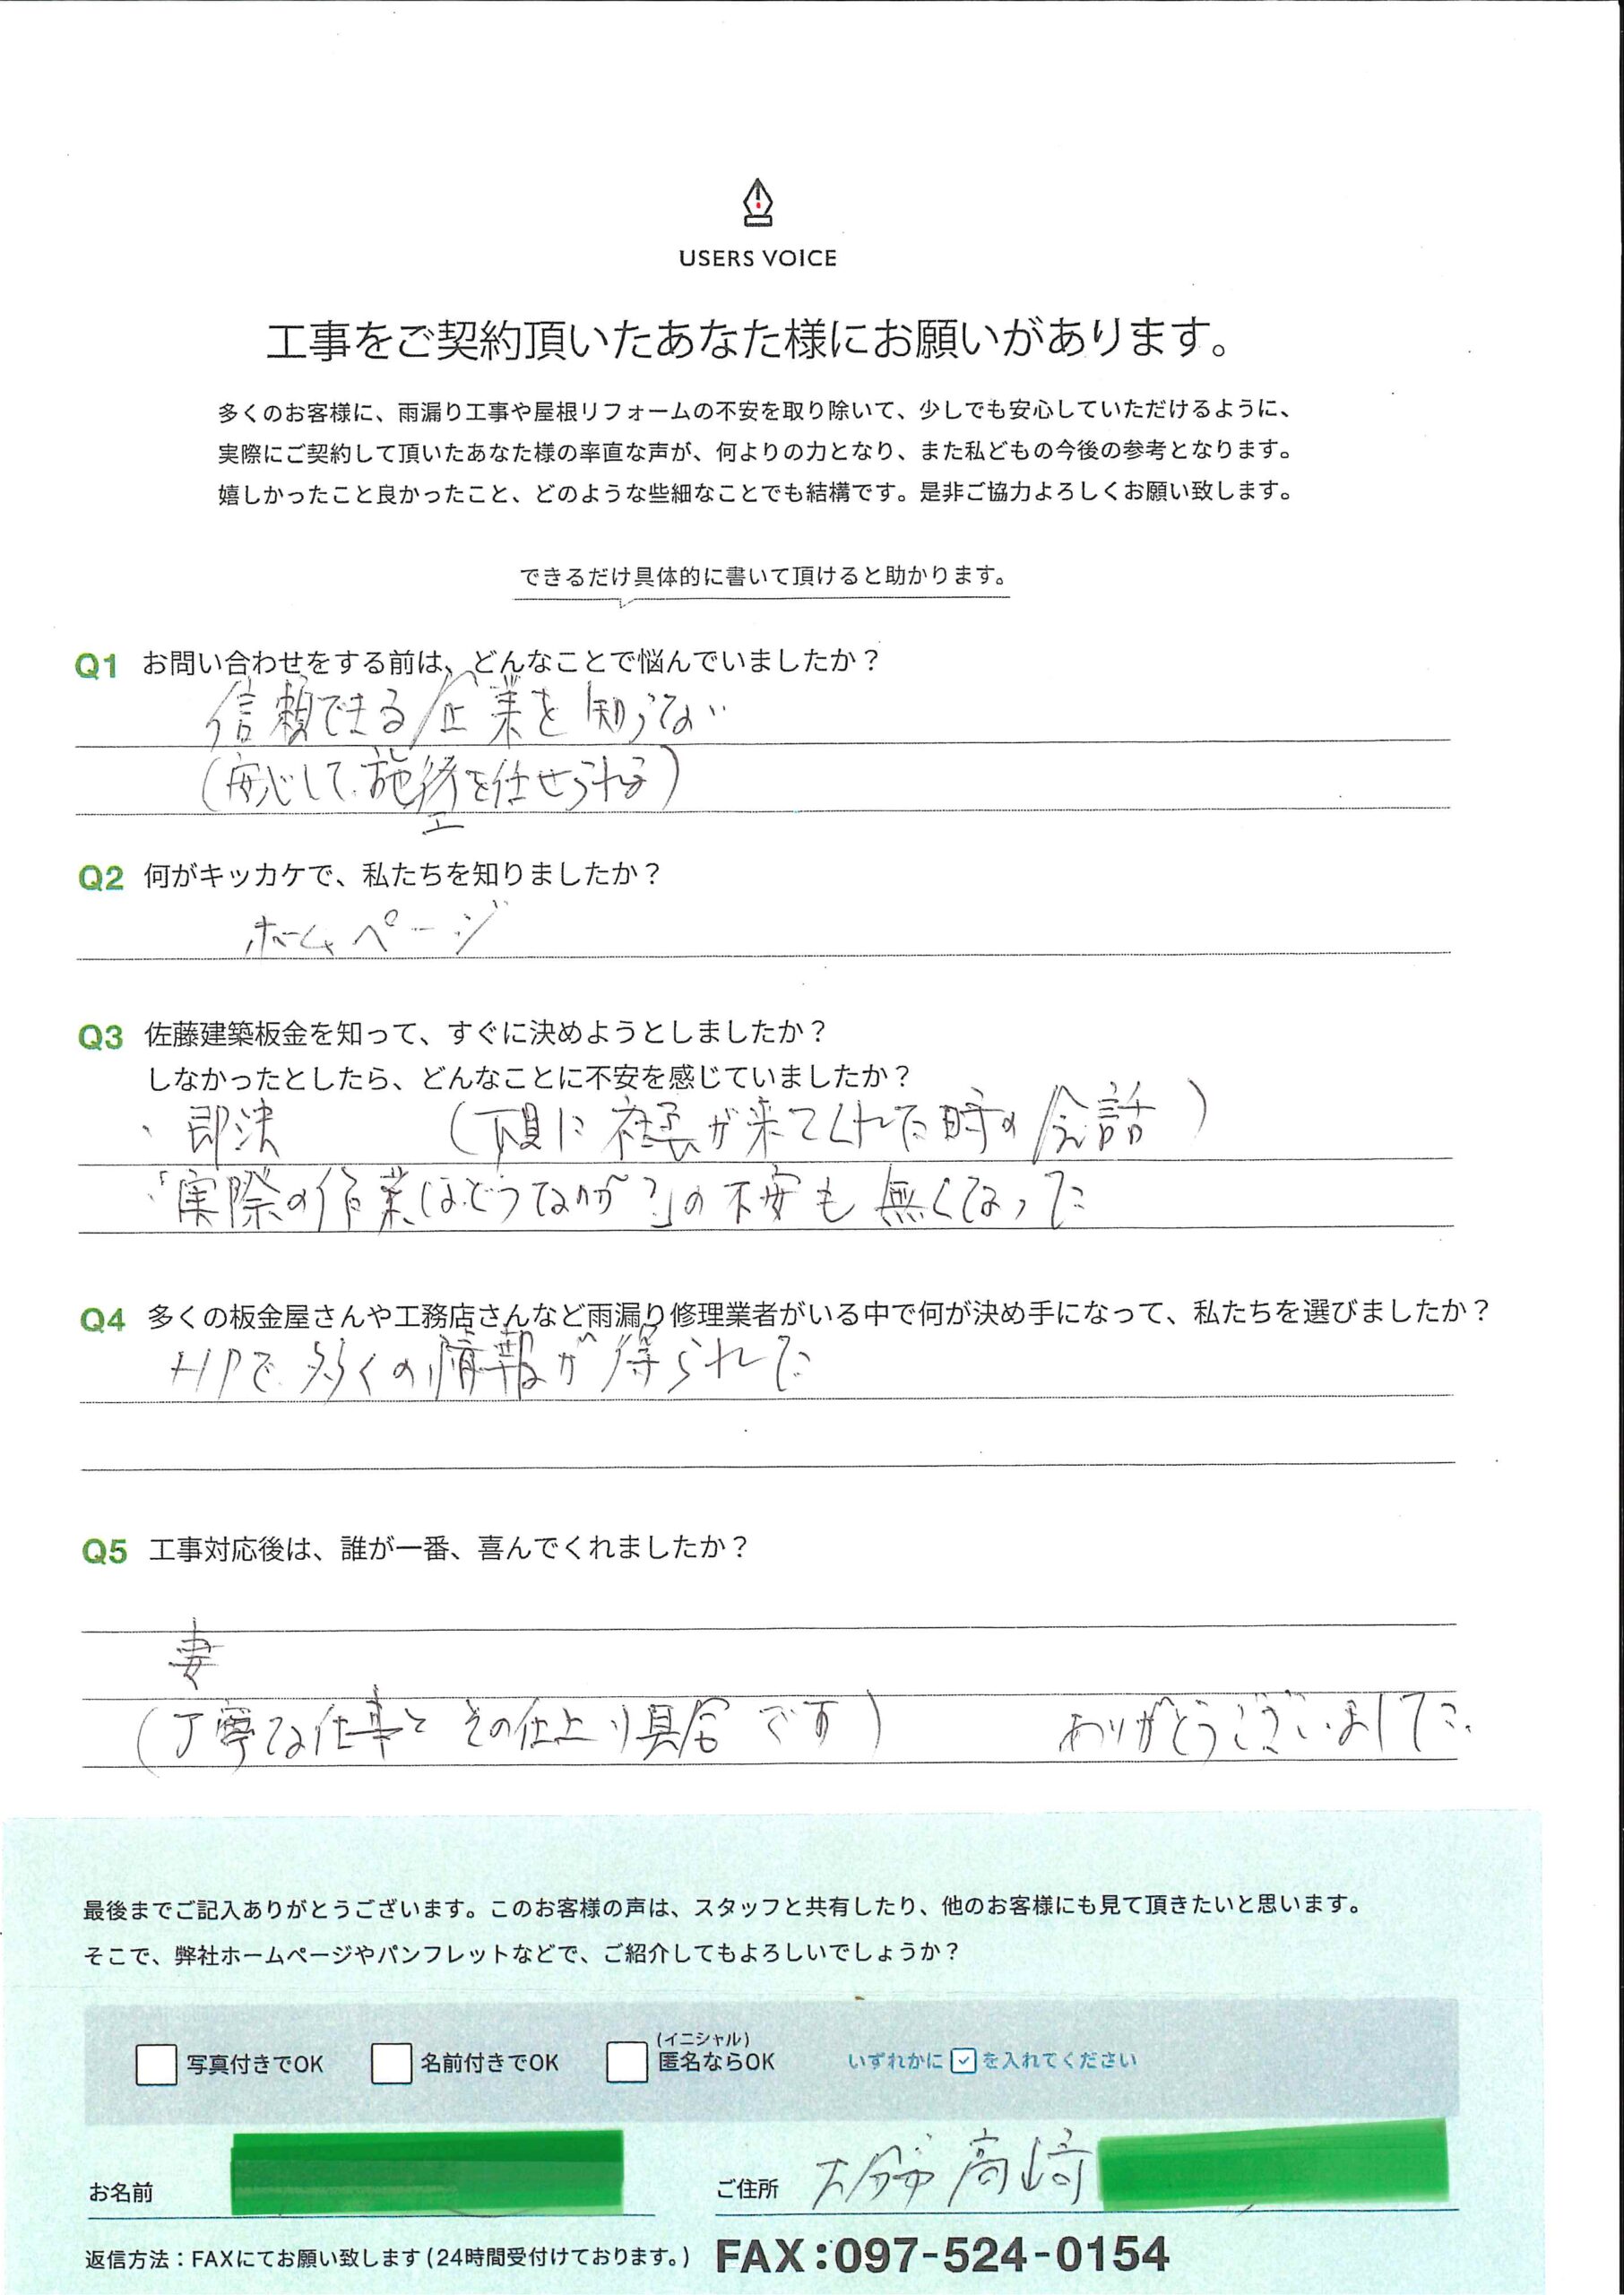 USERS VOICE
工事をご契約頂いたあなた様にお願いがあります。
多くのお客様に、雨漏り工事や屋根リフォームの不安を取り除いて、少しでも安心していただけるように、
実際にご契約して頂いたあなた様の率直な声が、何よりの力となり、また私どもの今後の参考となります。
嬉しかったこと良かったこと、どのような些細なことでも結構です。是非ご協力よろしくお願い致します。
できるだけ具体的に書いて頂けると助かります。
Q1 お問い合わせをする前は、どんなことで悩んでいましたか？
信頼できる企業を知らない
(安心して施工を任せられる)
Q2 何がキッカケで、私たちを知りましたか？
ホームページ
Q3 佐藤建築板金を知って、すぐに決めようとしましたか？
しなかったとしたら、どんなことに不安を感じていましたか？
・即決 (下見に社長が来てくれた時の会話)
・「実際の作業はどうなのか？」の不安も無くなった
Q4 多くの板金屋さんや工務店さんなど雨漏り修理業者がいる中で何が決め手になって、私たちを選びましたか？
HPで多くの情報が得られた
Q5 工事対応後は、誰が一番、喜んでくれましたか？
妻
(丁寧な仕事とその仕上り具合です) ありがとうございました。
最後までご記入ありがとうございます。このお客様の声は、スタッフと共有したり、他のお客様にも見て頂きたいと思います。
そこで、弊社ホームページやパンフレットなどで、ご紹介してもよろしいでしょうか？
(イニシャル)
写真付きでOK 名前付きでOK 匿名ならOK いずれかに を入れてください
お名前 ご住所 大分市高崎
返信方法：FAXにてお願い致します(24時間受付けております。) FAX：097-524-0154